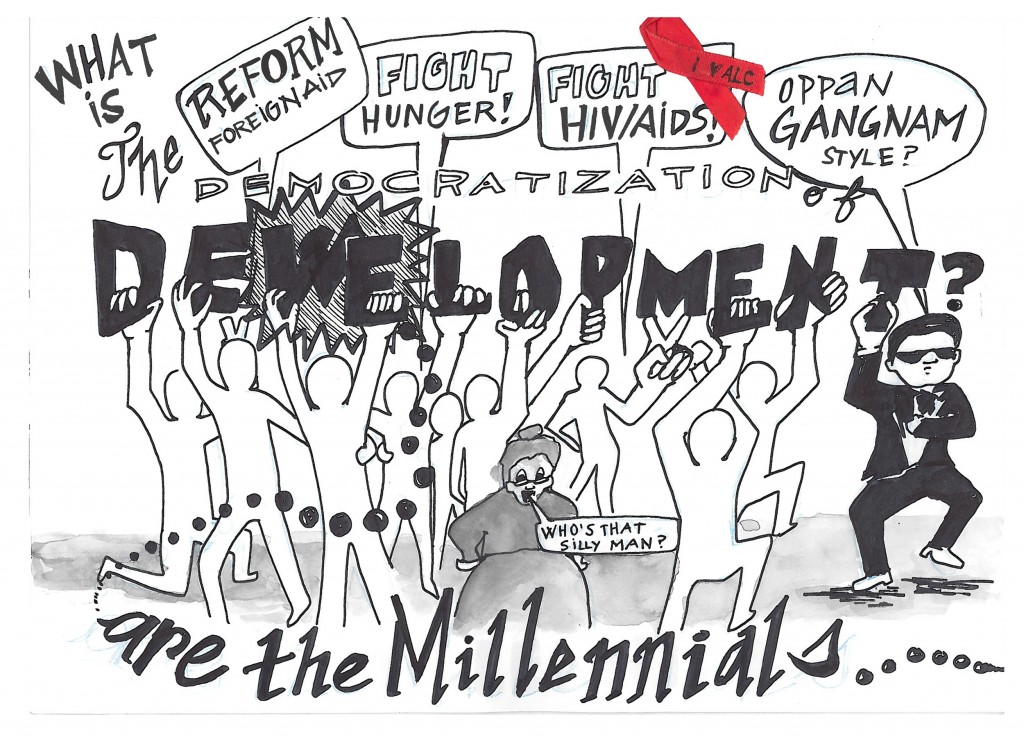 WHAT
is
The
REFORM
FOREIGN AID
FIGHT
HUNGER!
FIGHT
HIV/AIDS!
I ♥ ALC
OPPAN
GANGNAM
STYLE?
DEMOCRATIZATION
of
DEVELOPMENT?
WHO'S THAT
SILLY MAN?
are the Millennials......